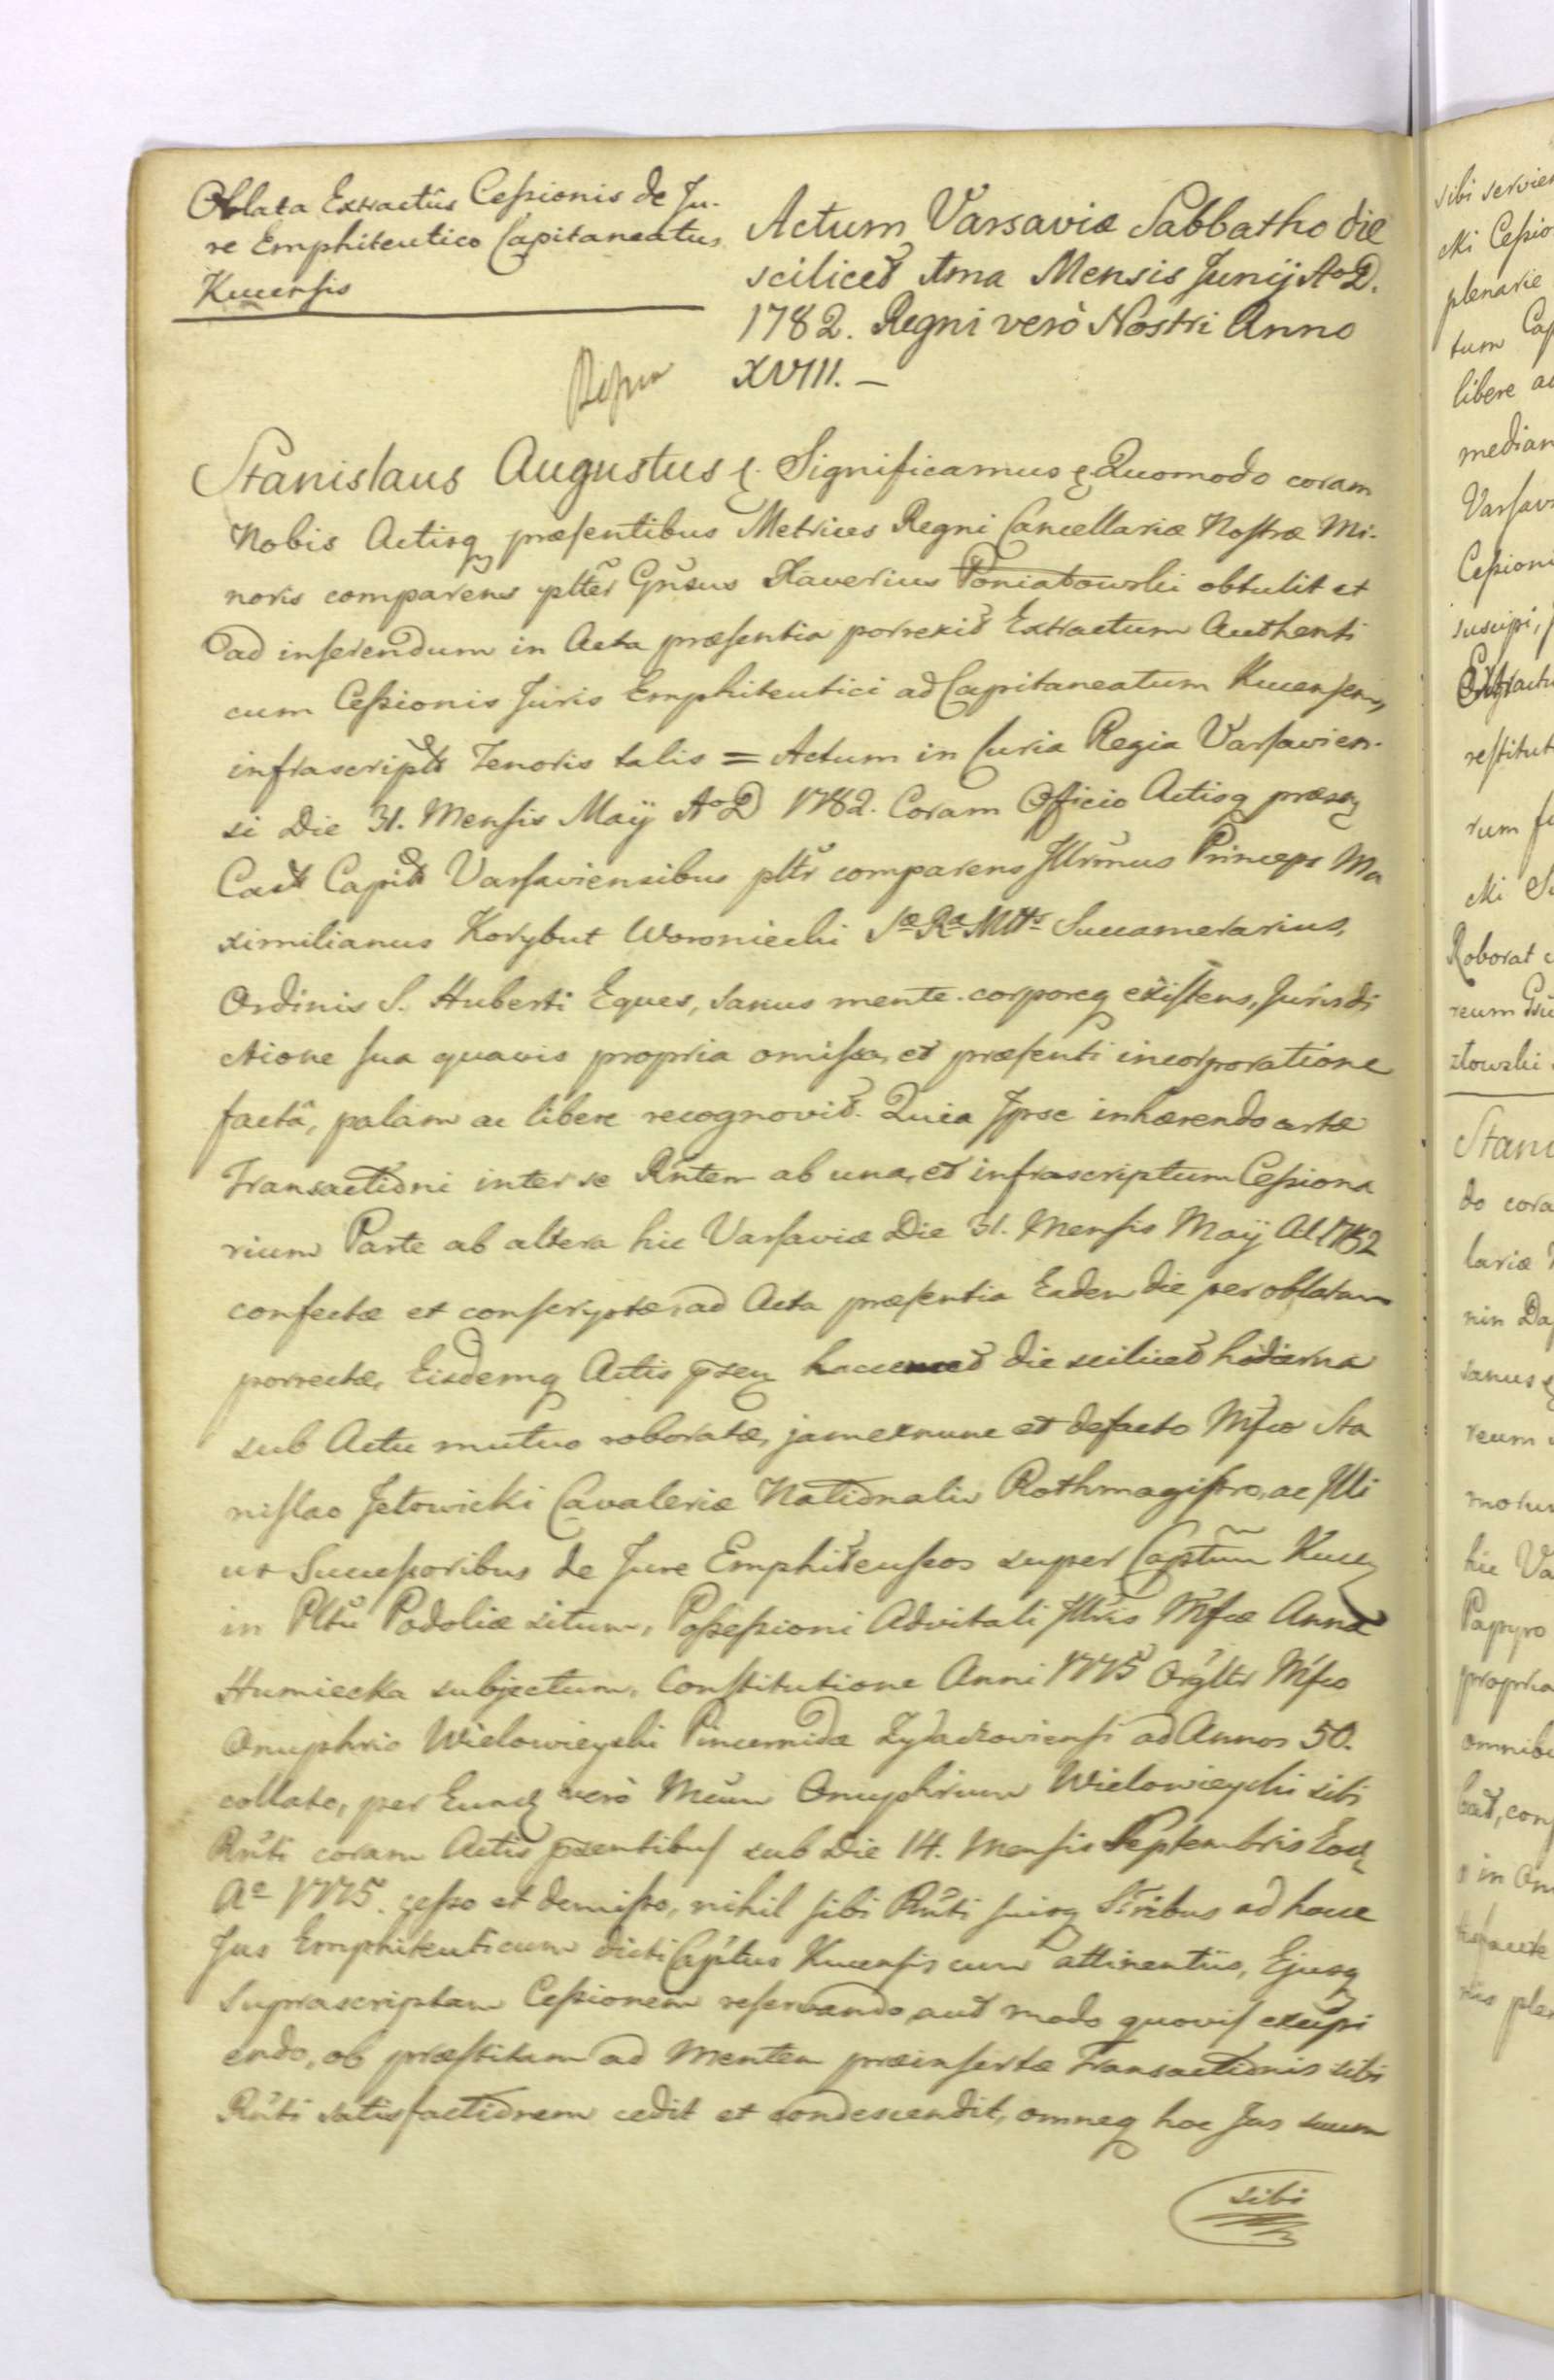 Oblata Extractûs Cessionis de Ju-
re Emphiteutico Capitaneatus
Kucensis
Actum Varsaviæ Sabbatho die
scilicet 1ma Mensis Junij AoD.
1782. Regni verò Nostri Anno
XVIII. –
Stanislaus Augustus &. Significamus & Quomodo coram
Nobis Actisq præsentibus Metrices Regni Cancellariæ Nostræ Mi-
noris comparens plter Gnsus Xaverius Poniatowski obtulit et
ad inserendum in Acta præsentia porrexit Extractum Authenti
cum Cessionis Juris Emphiteutici ad Capitaneatum Kucensem,
infrascripti Tenoris talis = Actum in Curia Regia Varsavien-
si Die 31. Mensis Maÿ AoD 1782. Coram Officio Actisq præsen
Cast Capit Varsaviensibus pltr comparens Jllrmus Princeps Ma
ximilianus Korybut Woroniecki Sæ Ræ Mttis Succamerarius,
Ordinis S. Huberti Eques, sanus mente corporeq existens, Jurisdi
ctione sua quavis propria omissa, et præsenti incorporatione
factâ, palàm ac libere recognovit. Quia Jpse inhærendo certæ
Transactioni inter se Rntem ab una, et infrascriptum Cessiona
rium Parte ab altera hic Varsaviæ Die 31. Mensis Maÿ A1782
confectæ et conscriptæ, ad Acta præsentia Eadem die per oblatam
porrectæ, Eisdemq Actis psen die scilicet hodierna
sub Actu mutuo roboratæ, jamexnunc et defacto Mfco Sta
nislao Jełowicki Cavaleriæ Nationalis Rothmagistro, ac Illi
us Successoribus de Jure Emphiteuseos super Captum Kucen
in Pltu Podoliæ situm, Possessioni Advitali Jllris Mfcæ Annæ
Humiecka subjectum, Constitutione Anni 1775 Orgltr Mfco
Onuphrio Wielowieyski Pincernidæ Zydaczoviensi ad Annos 50.
collato, per Eund verò Mcum Onuphrium Wielowieyski sibi
Rnti coram Actis psentibus sub Die 14. Mensis Septembris Eod
Ao 1775. cesso et demisso, nihil sibi Rnti suisq Sribus ad hocce
Jus Emphiteuticum dicti Captus Kucensis cum attinentiis, Ejusq
suprascriptam Cessionem reservando, aut modo quovis excipi
endo, ob præstitam ad Mentem præinsertæ Transactionis sibi
Rnti satisfactionem cedit et condescendit, omneq hoc Jus suum
sibi